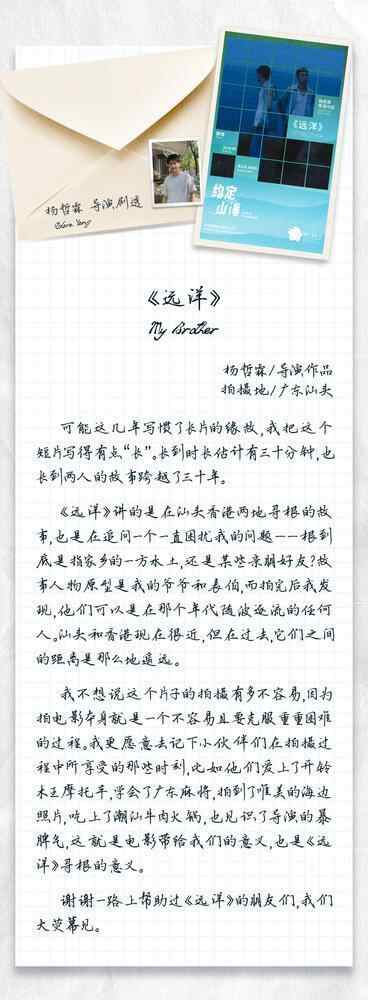 《远洋》
约定
山海
杨哲霖 导演剧选
《远洋》
My Brother
杨哲霖/导演作品
拍摄地/广东汕头
可能这几年写惯了长片的缘故,我把这个
短片写得有点“长”。长到时长估计有三十分钟,也
长到两人的故事跨越了三十年。
《远洋》讲的是在汕头香港两地寻根的故
事,也是在追问一个一直困扰我的问题——根到
底是指家乡的一方水土,还是某些亲朋好友?故
事人物原型是我的爷爷和表伯,而拍完后我发
现,他们可以是在那个年代随波逐流的任何
人。汕头和香港现在很近,但在过去,它们之间
的距离是那么地遥远。
我不想说这个片子的拍摄有多不容易,因为
拍电影本身就是一个不容易且要克服重重困难
的过程。我更愿意去记下小伙伴们在拍摄过
程中所享受的那些时刻,比如他们爱上了开铃
木王摩托车,学会了广东麻将,拍到了唯美的海边
照片,吃上了潮汕牛肉火锅,也见识了导演的暴
脾气,这就是电影带给我们的意义,也是《远
洋》寻根的意义。
谢谢一路上帮助过《远洋》的朋友们,我们
大荧幕见。